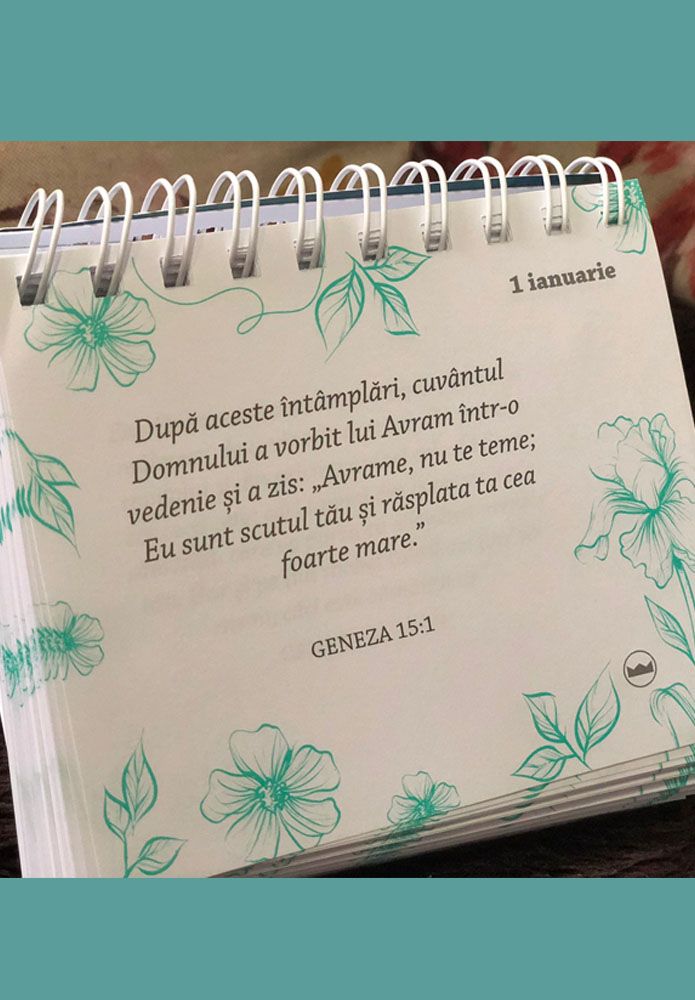 1 ianuarie
După aceste întâmplări, cuvântul
Domnului a vorbit lui Avram într-o
vedenie și a zis: „Avrame, nu te teme;
Eu sunt scutul tău și răsplata ta cea
foarte mare.”
GENEZA 15:1